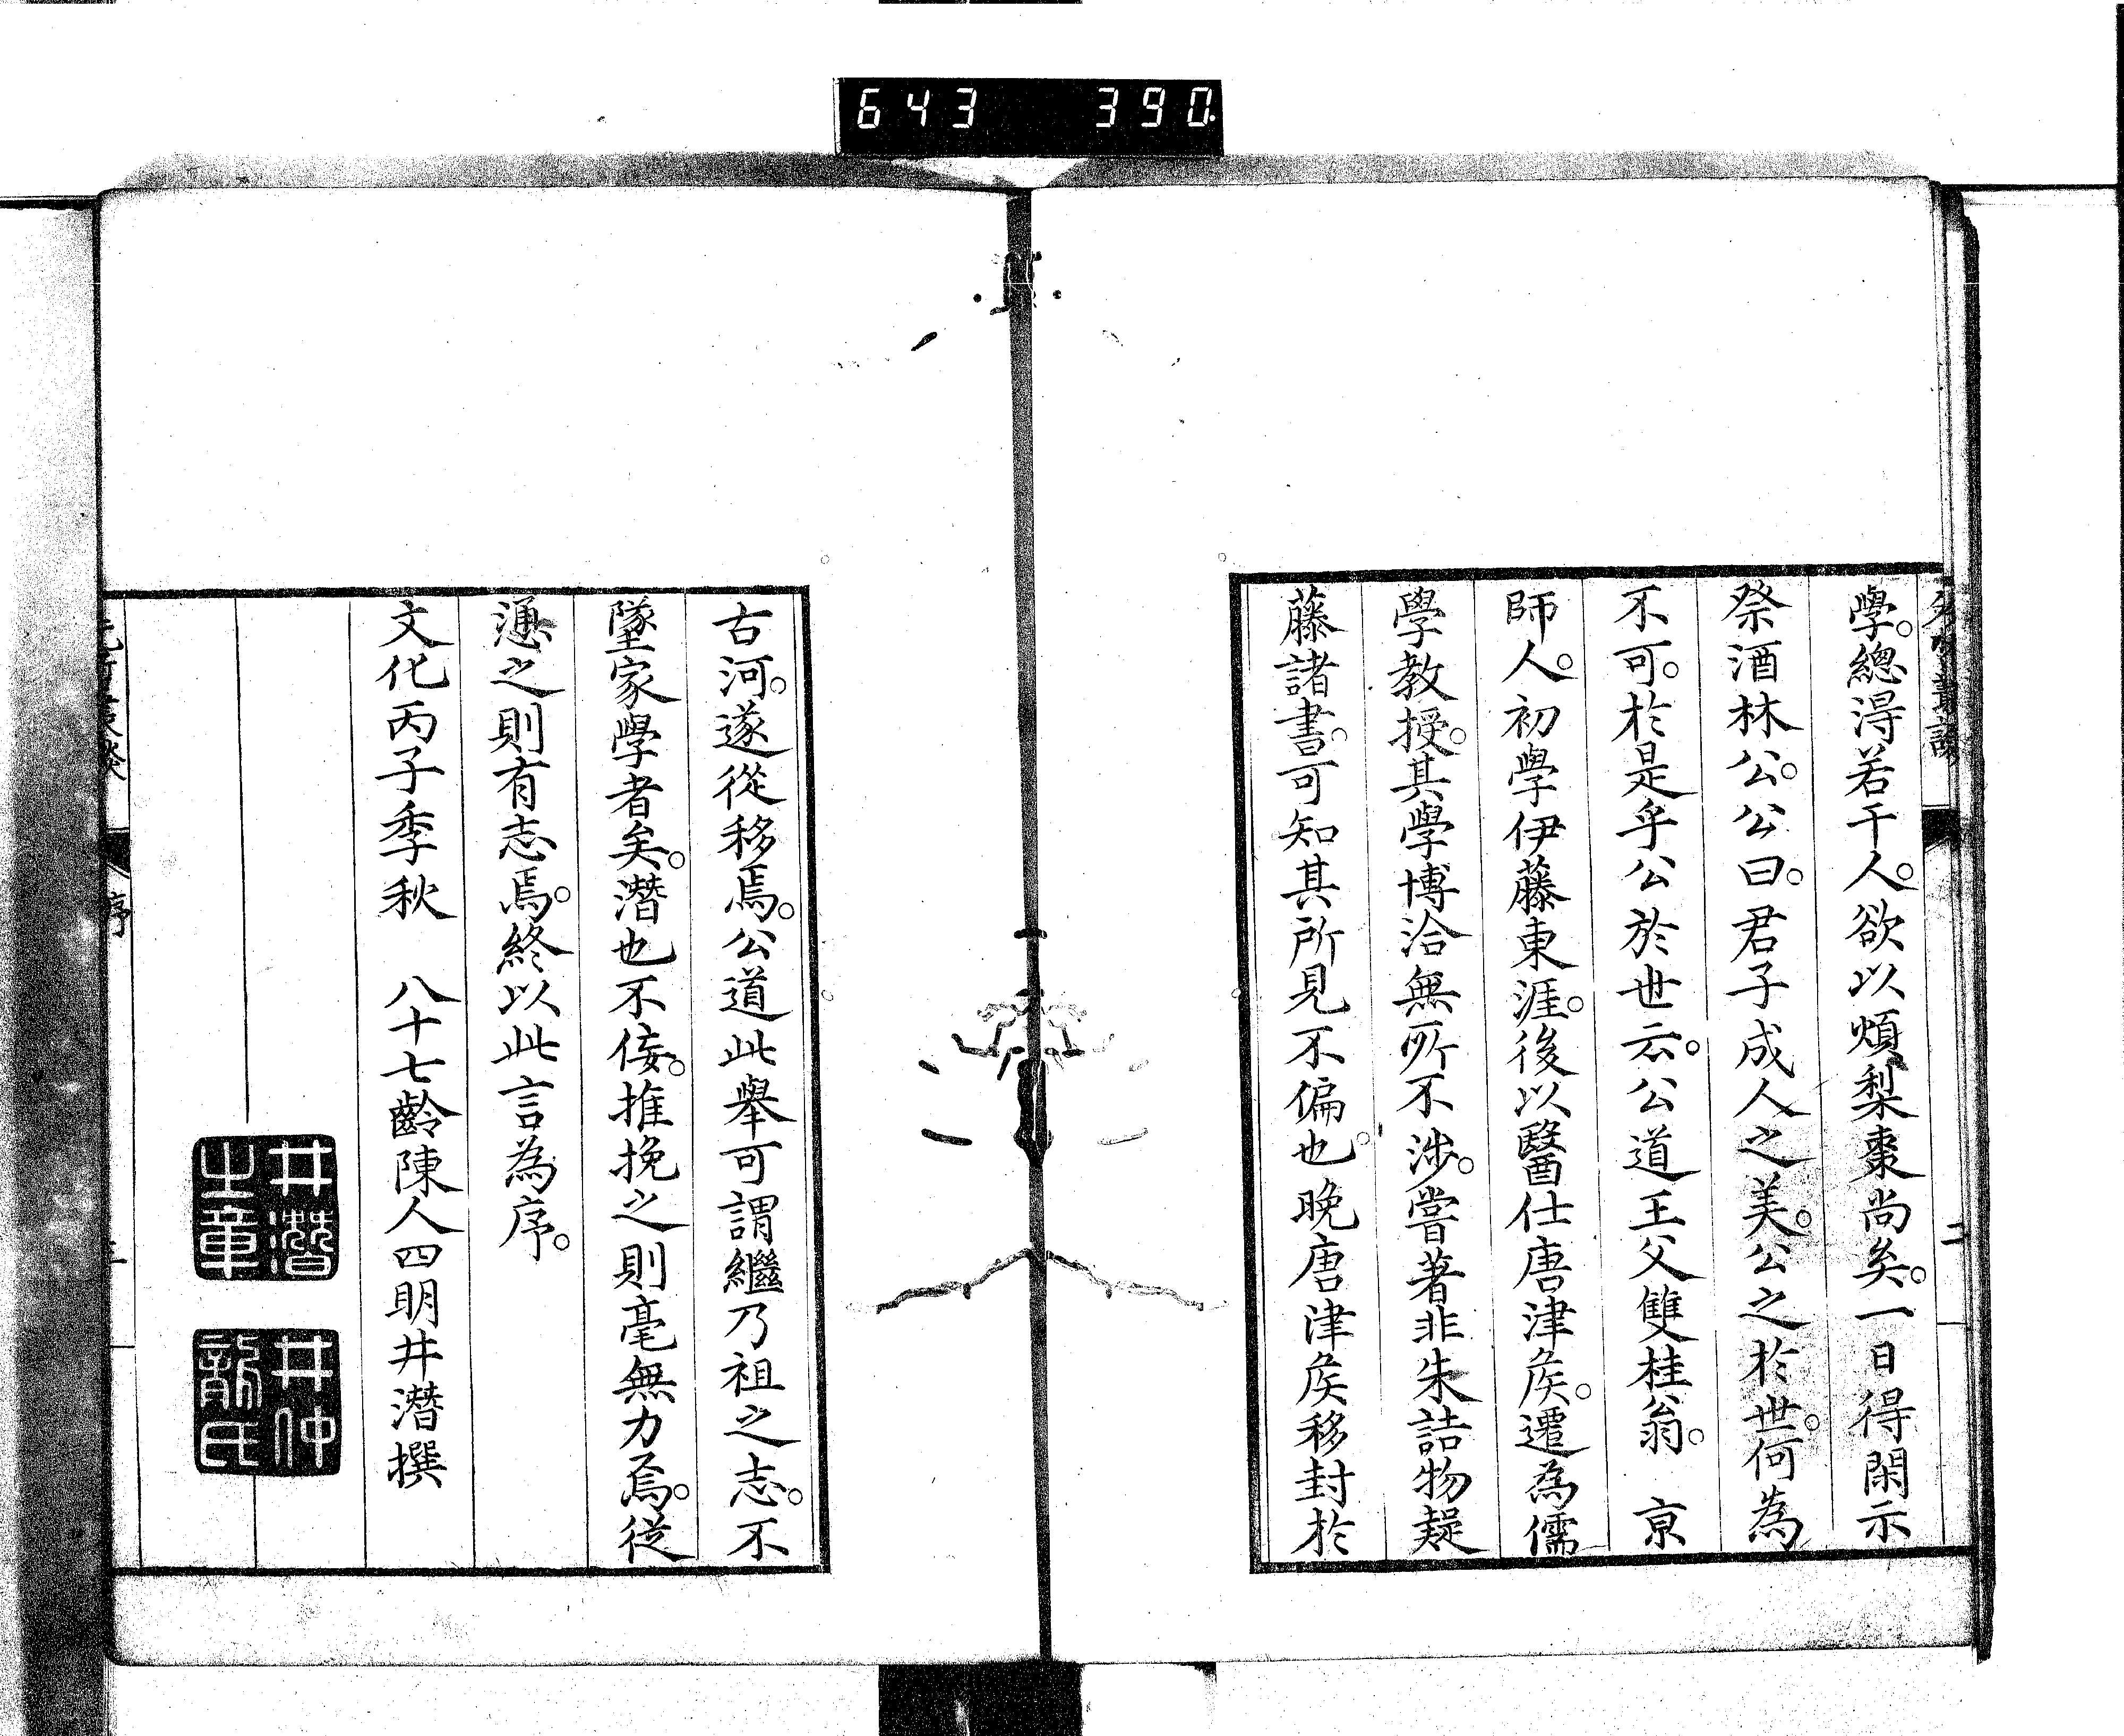 643 390
學。總淂若干人。欲以煩梨棗尚矣。一日得閑示
祭酒林公。公曰。君子成人之美。公之於世。何為
不可。於是乎公於世云。公道王父雙桂翁。京
師人。初學伊藤東涯。後以醫仕唐津矦。遷為儒
學教授。其學博洽無所不涉。嘗著非朱詰物疑
藤諸書。可知其所見不偏也。晚唐津矦移封於
古河。遂從移焉。公道此舉可謂繼乃祖之志。不
墜家學者矣。潛也不佞。推挽之則毫無力焉。從
慂之則有志焉。終以此言為序。
文化丙子季秋 八十七齡陳人四明井潛撰
井潛之章
井仲龍氏
序
二